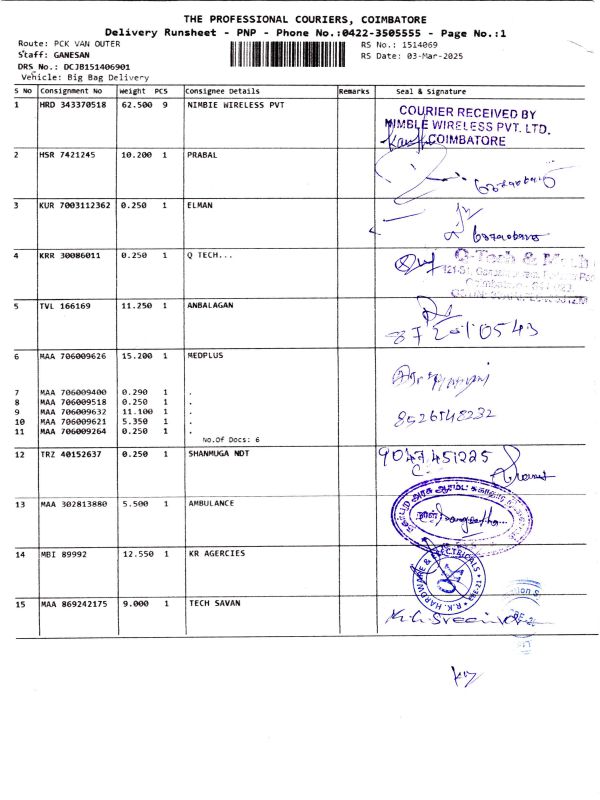 THE PROFESSIONAL COURIERS, COIMBATORE
Delivery Runsheet - PNP - Phone No.:0422-3505555 - Page No.:1
Route: PCK VAN OUTER RS No.: 1514069
Staff: GANESAN RS Date: 03-Mar-2025
DRS No.: DCJB151406901
Vehicle: Big Bag Delivery
S No Consignment No Weight PCS Consignee Details Remarks Seal & Signature
1 HRD 343370518 62.500 9 NIMBIE WIRELESS PVT
COURIER RECEIVED BY
NIMBLE WIRELESS PVT. LTD.
COIMBATORE
2 HSR 7421245 10.200 1 PRABAL
3 KUR 7003112362 0.250 1 ELMAN
4 KRR 30086011 0.250 1 Q TECH...
5 TVL 166169 11.250 1 ANBALAGAN
6 MAA 706009626 15.200 1 MEDPLUS
7 MAA 706009400 0.290 1 .
8 MAA 706009518 0.250 1 .
9 MAA 706009632 11.100 1 .
10 MAA 706009621 5.350 1 .
11 MAA 706009264 0.250 1 .
8526548232
No.Of Docs: 6
12 TRZ 40152637 0.250 1 SHANMUGA NDT 9047451225
13 MAA 302813880 5.500 1 AMBULANCE
14 MBI 89992 12.550 1 KR AGERCIES
R.K. HARDWARE & ELECTRICALS
15 MAA 869242175 9.000 1 TECH SAVAN